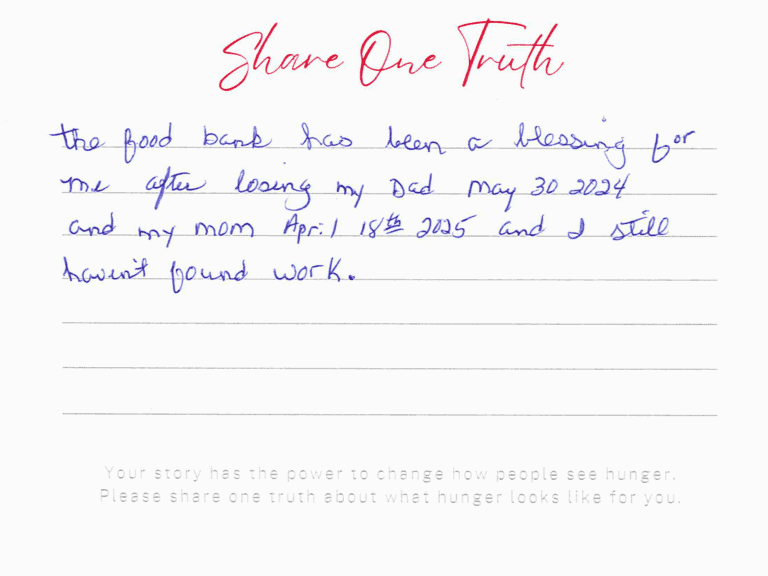 Share One Truth
the food bank has been a blessing for
me after losing my Dad May 30 2024
and my mom April 18th 2025 and I still
haven't found work.
Your story has the power to change how people see hunger.
Please share one truth about what hunger looks like for you.